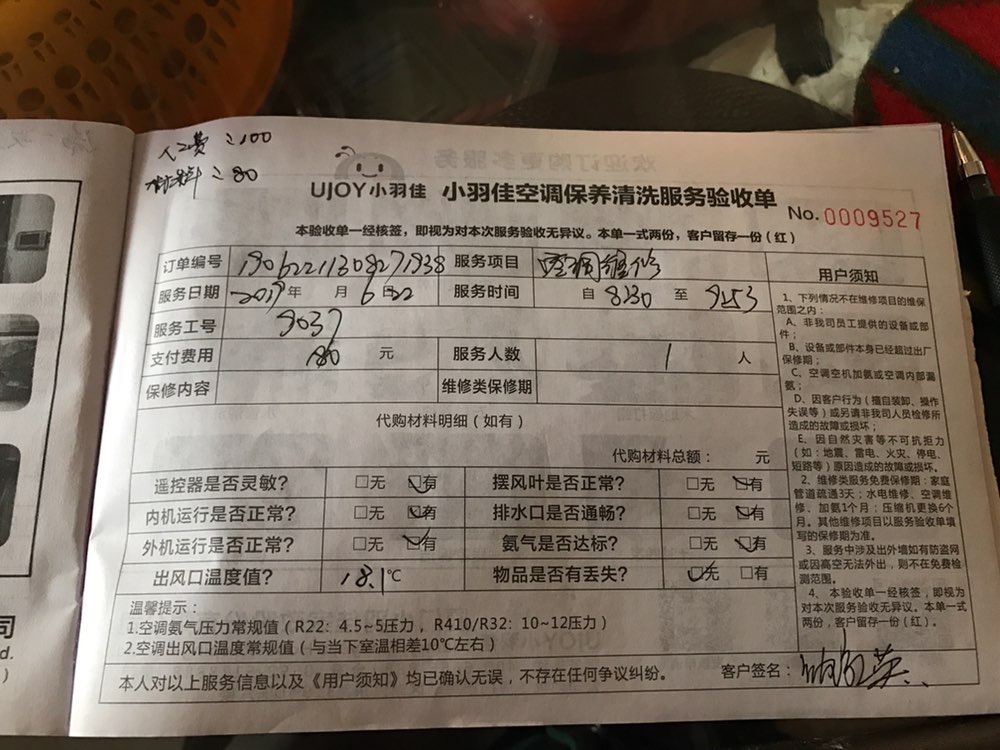 人工费 ≥100
材料 ≥80
UJOY小羽佳 小羽佳空调保养清洗服务验收单
No. 0009527
本验收单一经核签，即视为对本次服务验收无异议。本单一式两份，客户留存一份（红）
订单编号 19062211308271938 服务项目 空调维修
服务日期 2019年 月 6日22 服务时间 自 8:30 至 9:53
服务工号 9037
支付费用 180 元 服务人数 1 人
保修内容 维修类保修期
代购材料明细（如有）
代购材料总额： 元
遥控器是否灵敏？ □无 □有 摆风叶是否正常？ □无 □有
内机运行是否正常？ □无 □有 排水口是否通畅？ □无 □有
外机运行是否正常？ □无 □有 氨气是否达标？ □无 □有
出风口温度值？ 18.1℃ 物品是否有丢失？ □无 □有
温馨提示：
1.空调氨气压力常规值（R22：4.5~5压力，R410/R32：10~12压力）
2.空调出风口温度常规值（与当下室温相差10℃左右）
本人对以上服务信息以及《用户须知》均已确认无误，不存在任何争议纠纷。
客户签名：
用户须知
1、下列情况不在维修项目的维保
范围之内：
A、非我司员工提供的设备或部
件；
B、设备或部件本身已经超过出厂
保修期；
C、空调空机加氨或空调内部漏
氨；
D、因客户行为（擅自装卸、操作
失误等）或另请非我司人员检修所
造成的故障或损坏；
E、因自然灾害等不可抗拒力
（如：地震、雷电、火灾、停电、
短路等）原因造成的故障或损坏。
2、维修类服务免费保修期：家庭
管道疏通3天；水电维修、空调维
修、加氨1个月；压缩机更换6个
月。其他维修项目以服务验收单填
写的保修期为准。
3、服务中涉及出外墙如有防盗网
或因高空无法外出，则不在免费检
测范围。
4、本验收单一经核签，即视为
对本次服务验收无异议。本单一式
两份，客户留存一份（红）。
司
td.
)